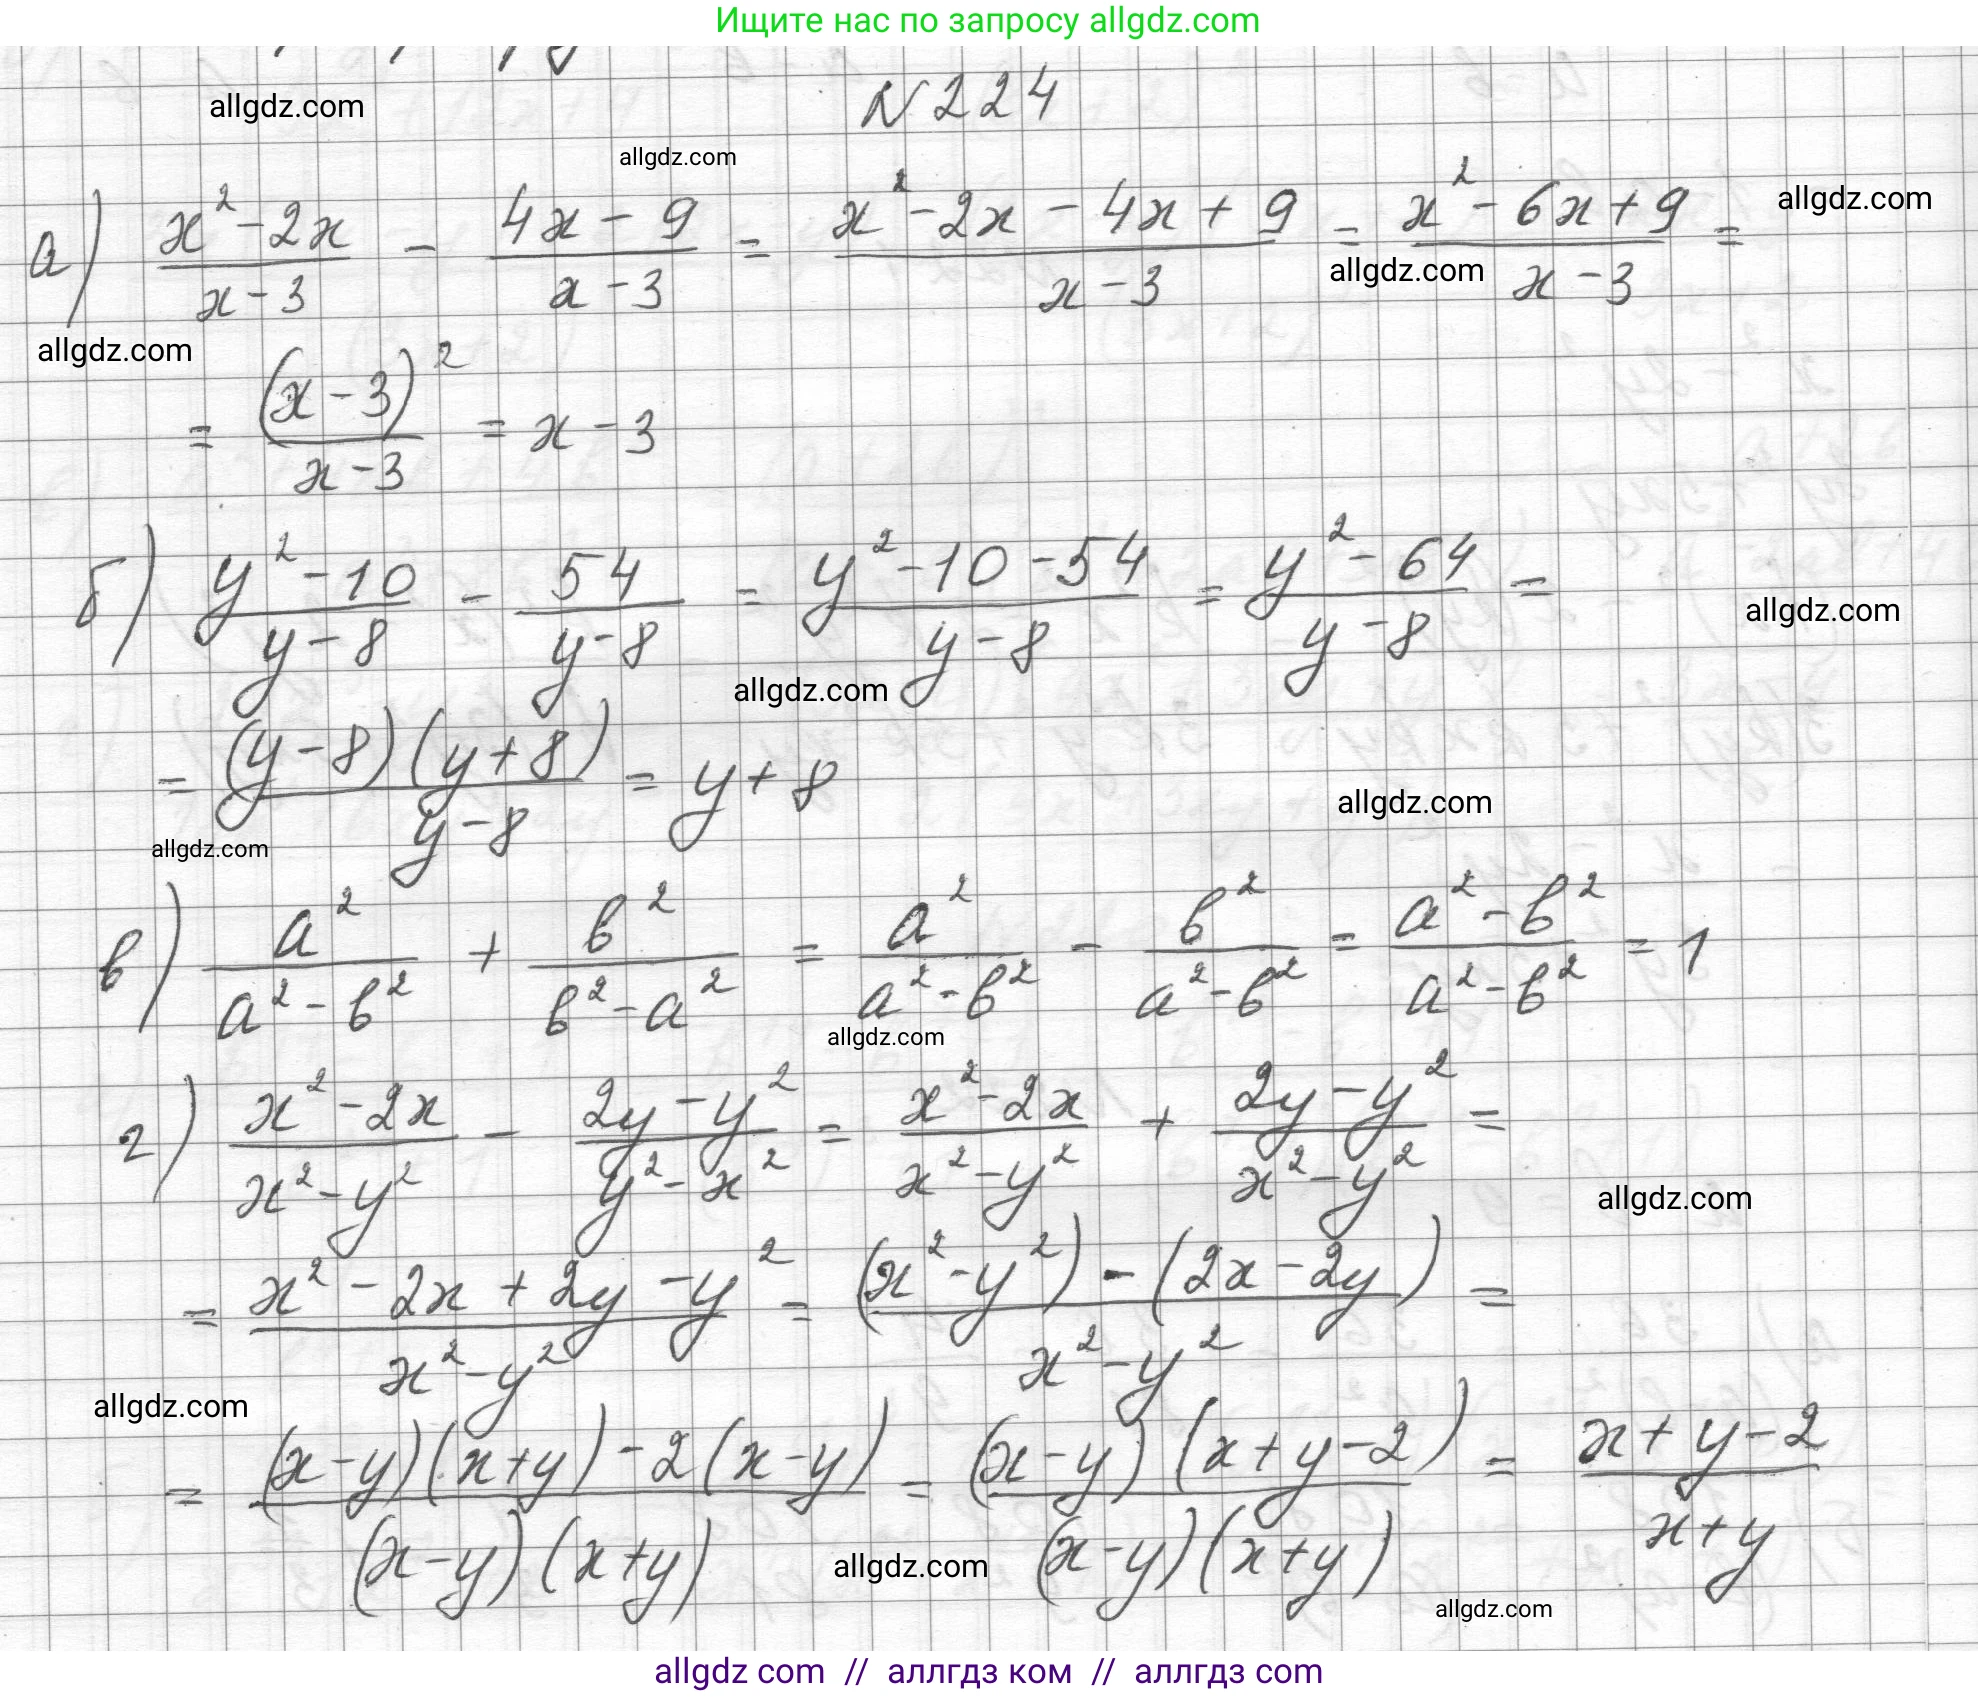 Ищите нас по запросу allgdz.com
N 224
allgdz.com
allgdz.com
а) (x² - 2x)/(x - 3) - (4x - 9)/(x - 3) = (x² - 2x - 4x + 9)/(x - 3) = (x² - 6x + 9)/(x - 3) =
allgdz.com
allgdz.com
allgdz.com
= (x - 3)²/(x - 3) = x - 3
б) (y² - 10)/(y - 8) - 54/(y - 8) = (y² - 10 - 54)/(y - 8) = (y² - 64)/(y - 8) =
allgdz.com
allgdz.com
= (y - 8)(y + 8)/(y - 8) = y + 8
allgdz.com
allgdz.com
в) a²/(a² - в²) + в²/(в² - a²) = a²/(a² - в²) - в²/(a² - в²) = (a² - в²)/(a² - в²) = 1
allgdz.com
г) (x² - 2x)/(x² - y²) - (2y - y²)/(y² - x²) = (x² - 2x)/(x² - y²) + (2y - y²)/(x² - y²) =
allgdz.com
= (x² - 2x + 2y - y²)/(x² - y²) = ((x² - y²) - (2x - 2y))/(x² - y²) =
allgdz.com
= ((x - y)(x + y) - 2(x - y))/((x - y)(x + y)) = (x - y)(x + y - 2)/((x - y)(x + y)) = (x + y - 2)/(x + y)
allgdz.com
allgdz.com
allgdz com // аллгдз ком // аллгдз com